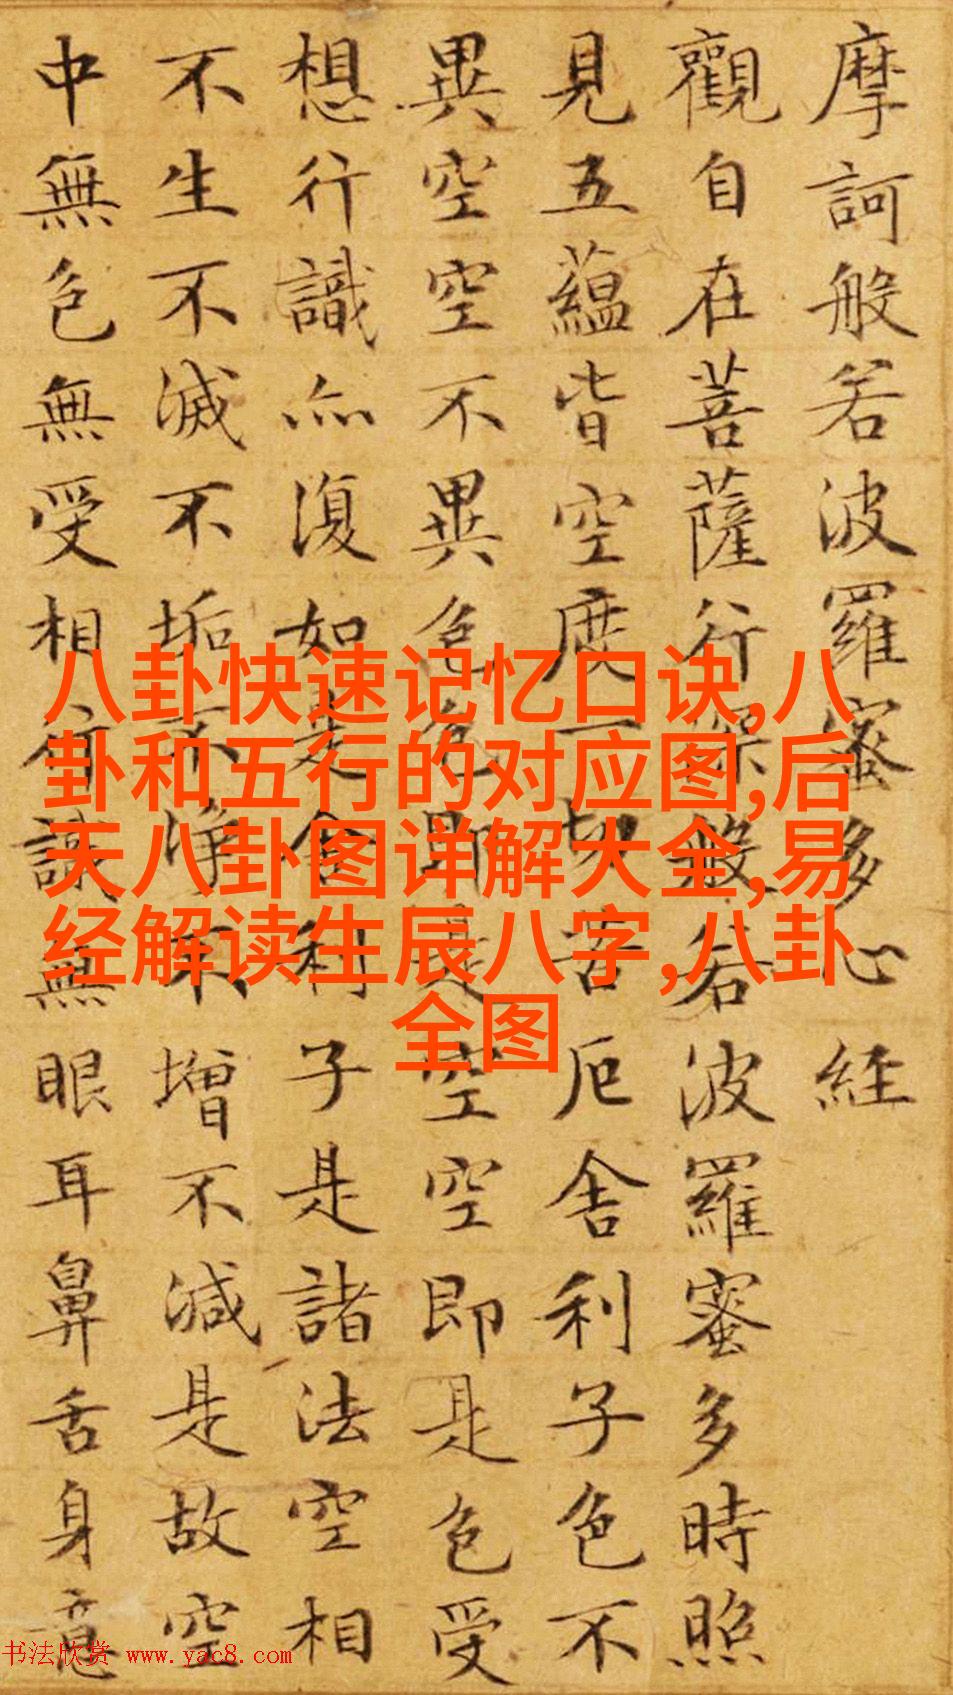 摩訶般若波羅蜜多心経
觀自在菩薩行深般若波羅蜜多時照
見五蘊皆空度一切苦厄舍利子色不
異空空不異色色即是空空即是色受
想行識亦復如是舍利子是諸法空相
不生不滅不垢不净不增不減是故空
中無色無受相行識無眼耳鼻舌身意
八卦快速记忆口诀,八
卦和五行的对应图,后
天八卦图详解大全,易
经解读生辰八字,八卦
全图
书法欣赏 www.yac8.com